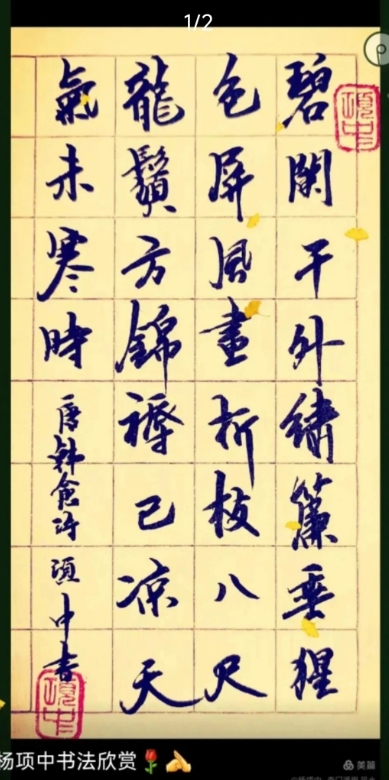 1/2
碧闌干外繡簾垂猩
色屏風畫折枝八尺
龍鬚方錦褥已凉天
氣未寒時
唐韩愈诗 项中书
项中
项中
杨项中书法欣赏
美篇